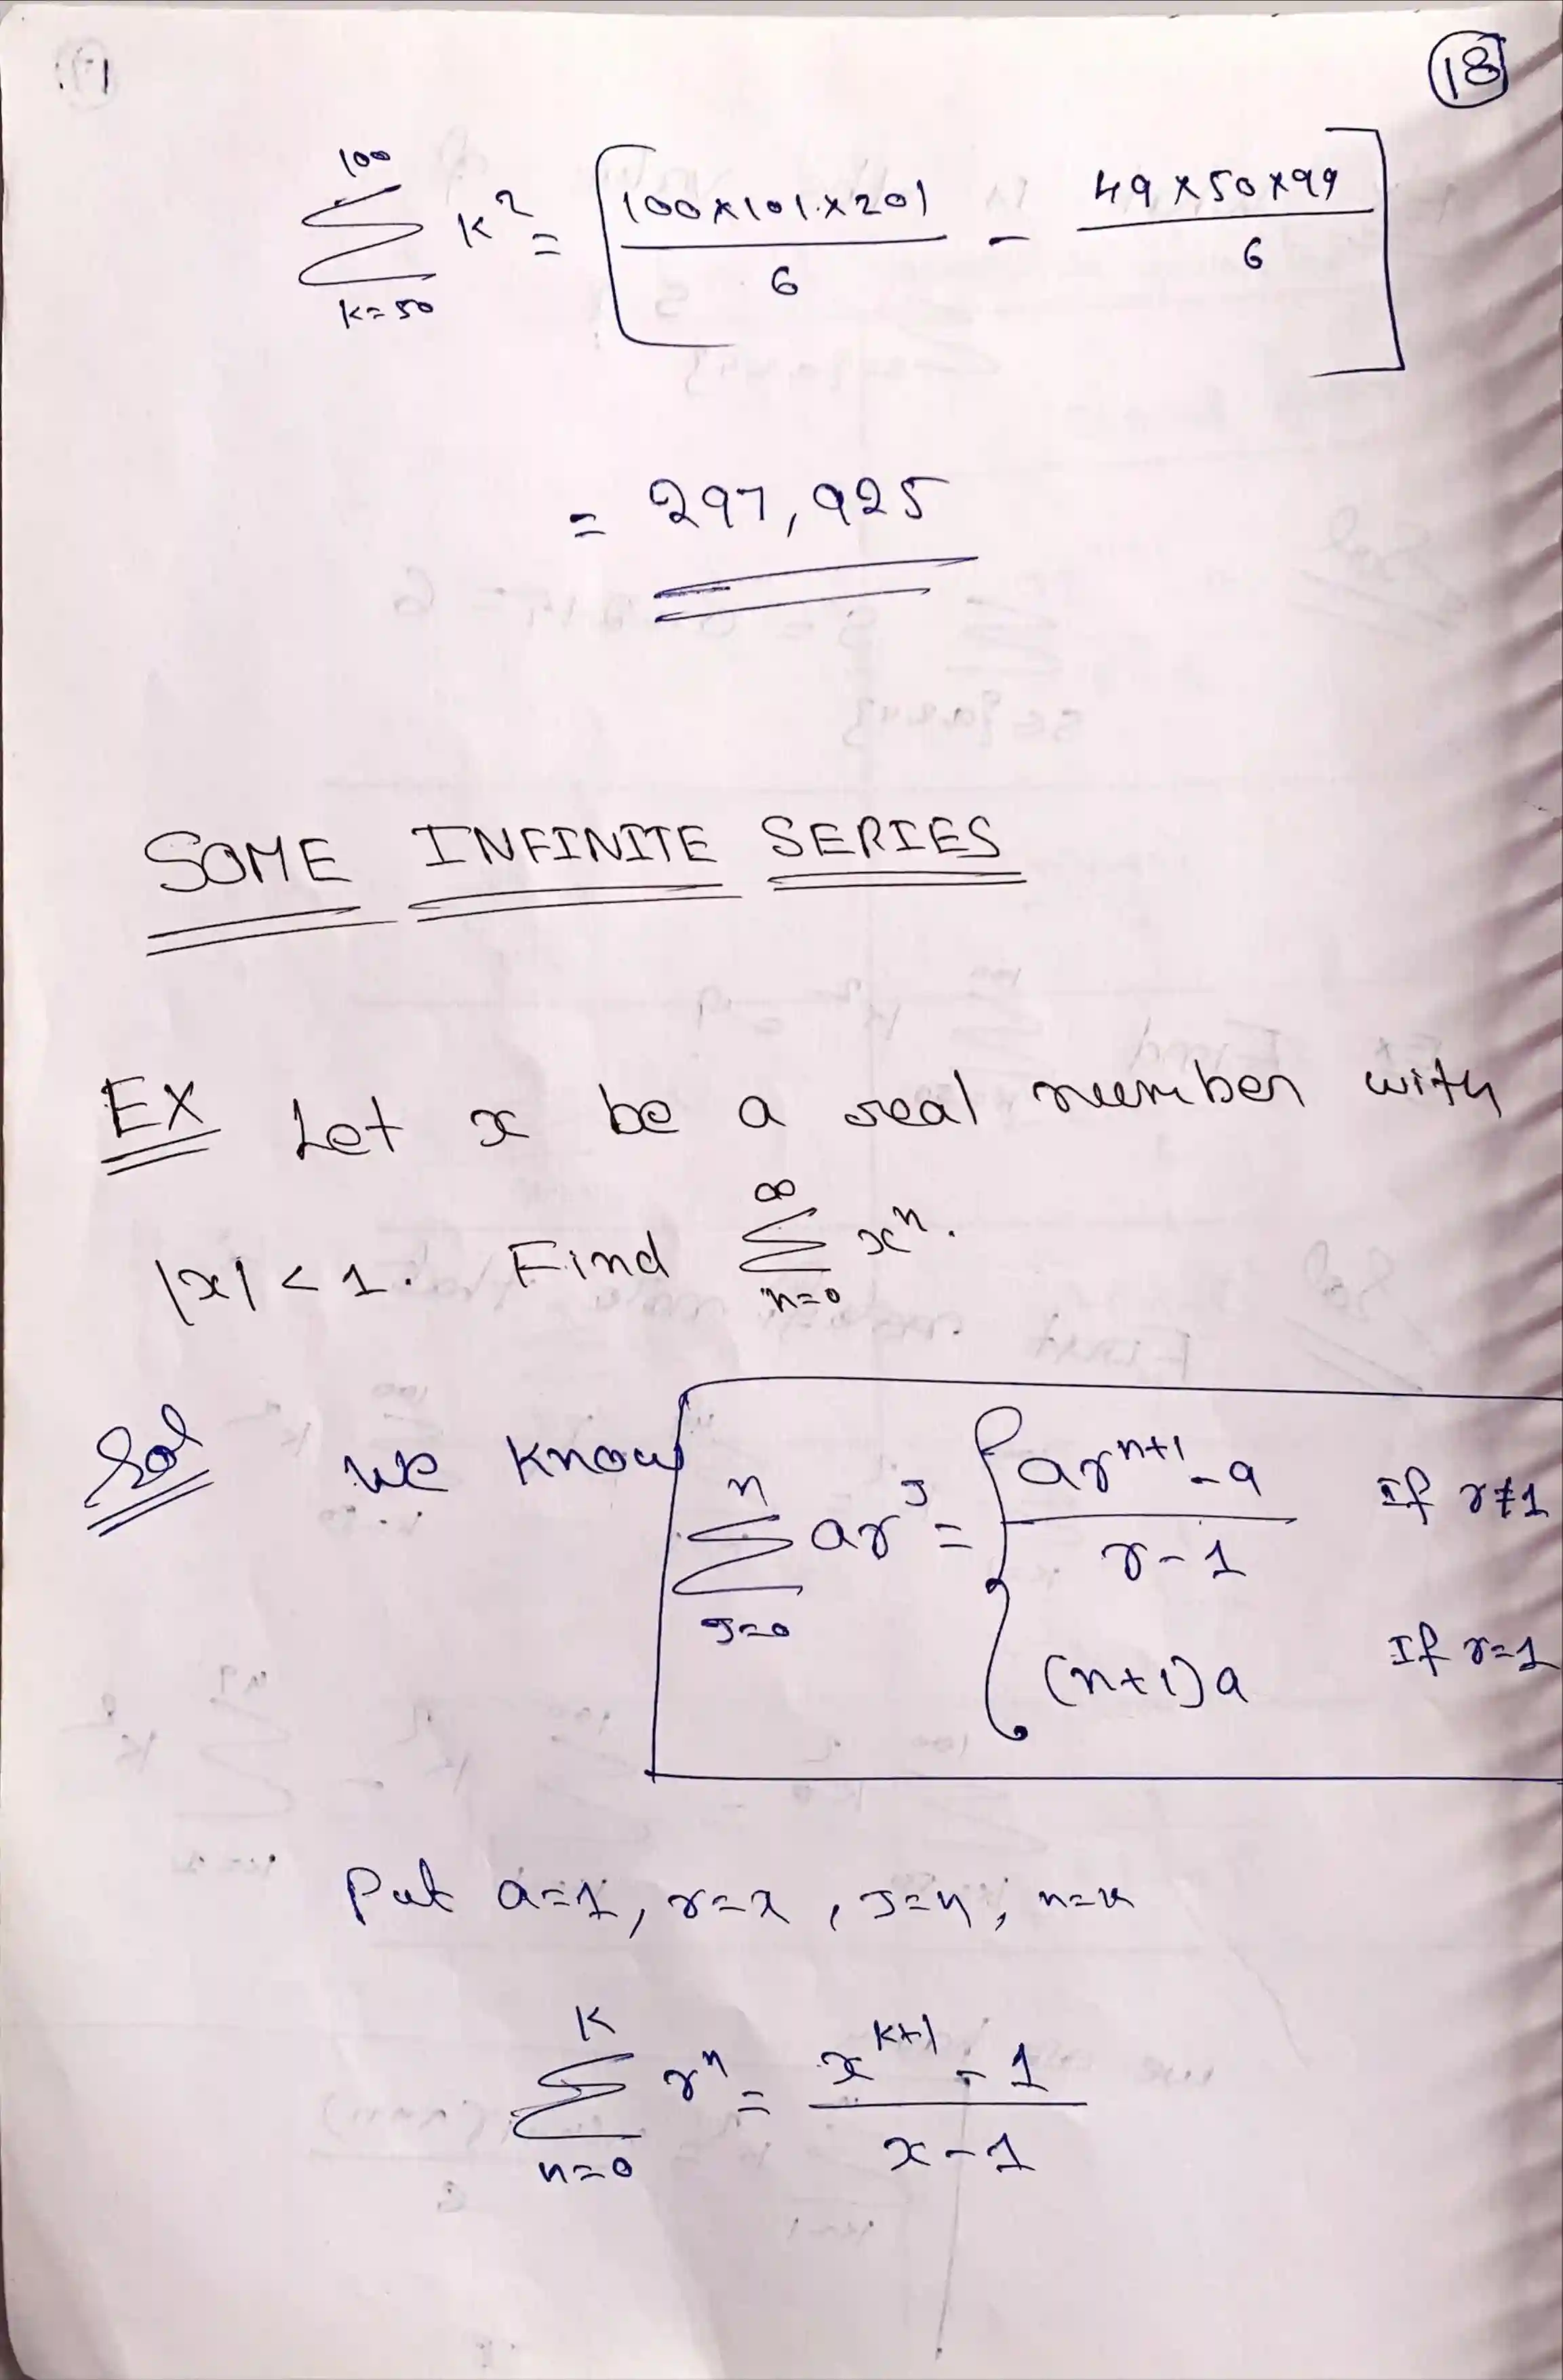 18
100
∑ k² = [ 100×101×201 / 6 - 49×50×99 / 6 ]
k=50
= 297,925
SOME INFINITE SERIES
EX Let x be a real number with
|x| < 1. Find ∑_{n=0}^{∞} xⁿ.
Sol we know ∑_{J=0}^{n} ar^J = { (ar^{n+1} - a) / (r - 1) If r≠1
(n+1)a If r=1
Put a=1, r=x, J=n, n=k
∑_{n=0}^{K} rⁿ = (x^{k+1} - 1) / (x - 1)